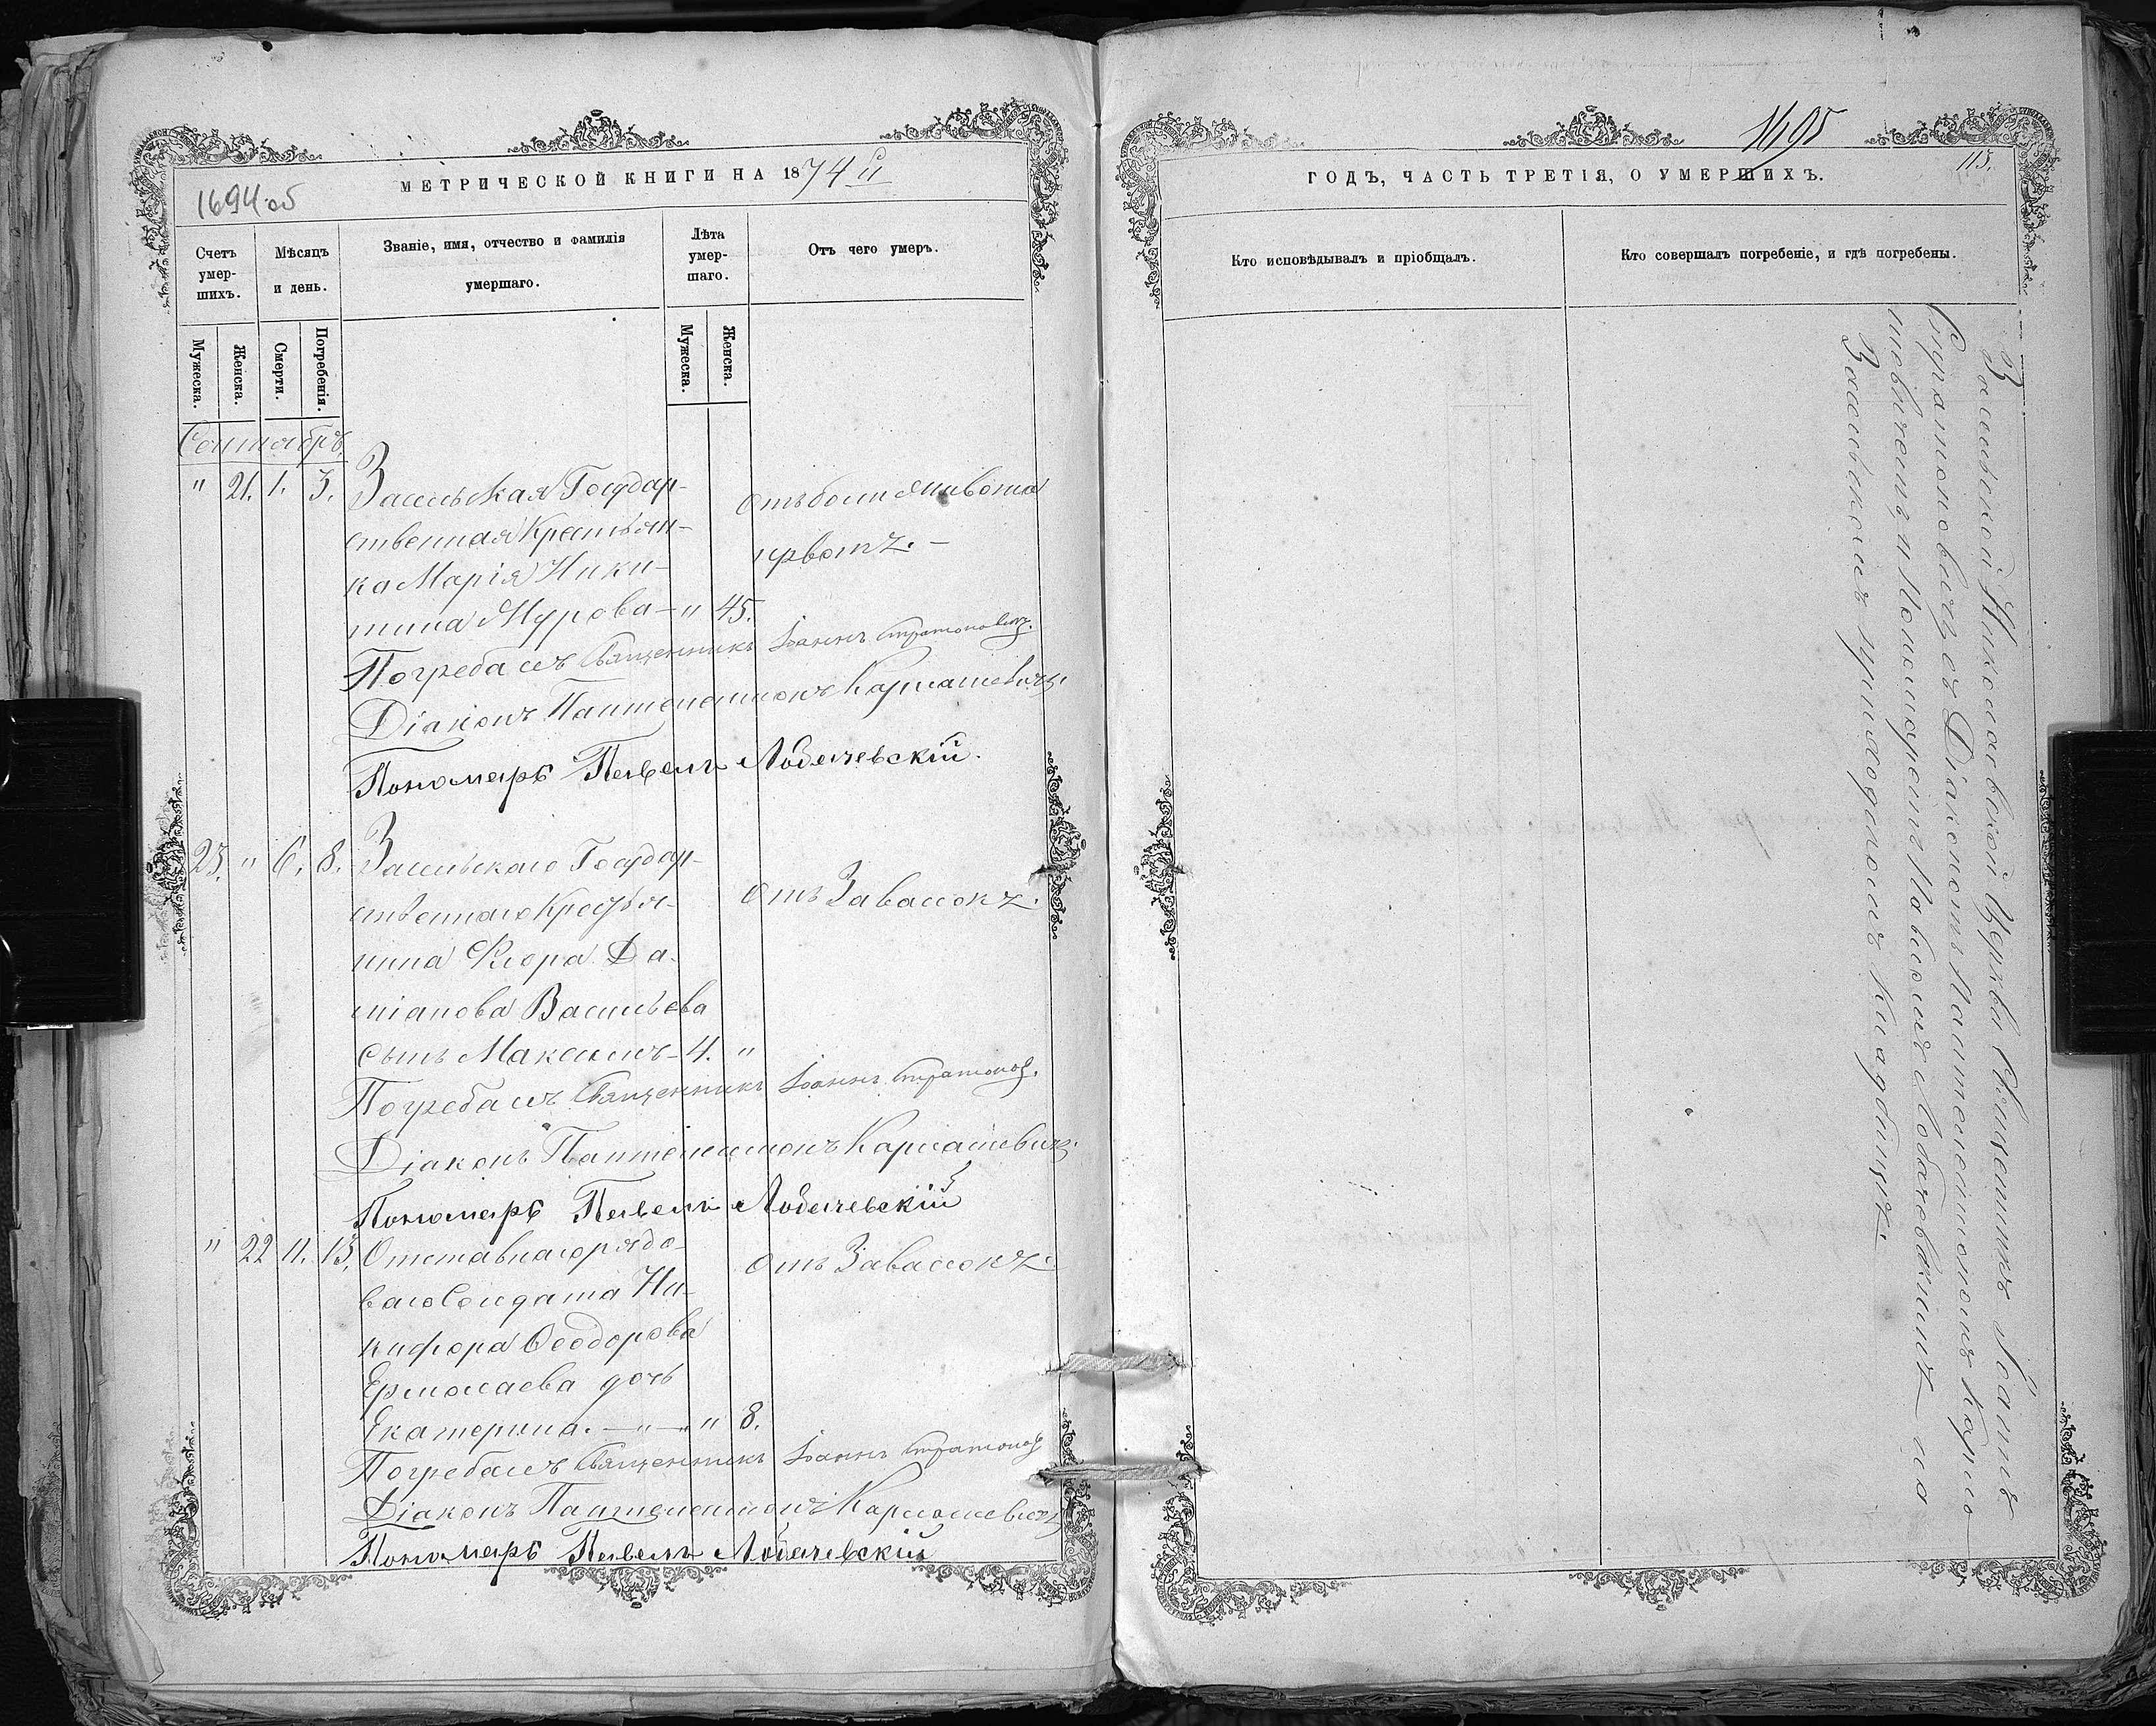 МЕТРИЧЕСКОЙ КНИГИ НА 1874й
1694об
Счетъ умер-шихъ.
Мѣсяцъ и день.
Званіе, имя, отчество и фамилія умершаго.
Лѣта умер-шаго.
Отъ чего умеръ.
Мужеска.
Женска.
Смерти.
Погребенія.
Мужеска.
Женска.
Сентябрь
" 21. 1. 3. Засельская Государ-
ственная Крестьян-
ка Марія Ники-
тина Мурова — " 45.
отъ боли живота
Погребалъ Священникъ Іоаннъ Стратоновичъ.
Діаконъ Пантелеимонъ Карпашевичъ
Пономарь Павелъ Лобачевскій.
23. " 6. 8. Засельскаго Государ-
ственнаго Крестья-
нина Да-
міанова Васильева
сынъ Максимъ — 4. "
отъ Завалокъ.
Погребалъ Священникъ Іоаннъ Стратонов.
Діаконъ Пантелеимонъ Карпашевичъ.
Пономарь Павелъ Лобачевскій
" 22 11. 13. Отставнаго рядо-
ваго Солдата Ни-
кифора Ѳеодорова
Ермолаева дочь
Екатерина. — " — " 8.
отъ Завалокъ.
Погребалъ Священникъ Іоаннъ Стратонов
Діаконъ Пантелеимонъ Карпашевичъ
Пономарь Павелъ Лобачевскій
1695
115.
ГОДЪ, ЧАСТЬ ТРЕТІЯ, О УМЕРШИХЪ.
Кто исповѣдывалъ и пріобщалъ.
Кто совершалъ погребеніе, и гдѣ погребены.
Засельской Николаевской Церкви Священникъ Іоаннъ
Стратоновичъ съ Діакономъ Пантелеимономъ Карпа-
шевичемъ и Пономаремъ Павломъ Лобачевскимъ — на
Засельскомъ приходскомъ кладбищѣ.